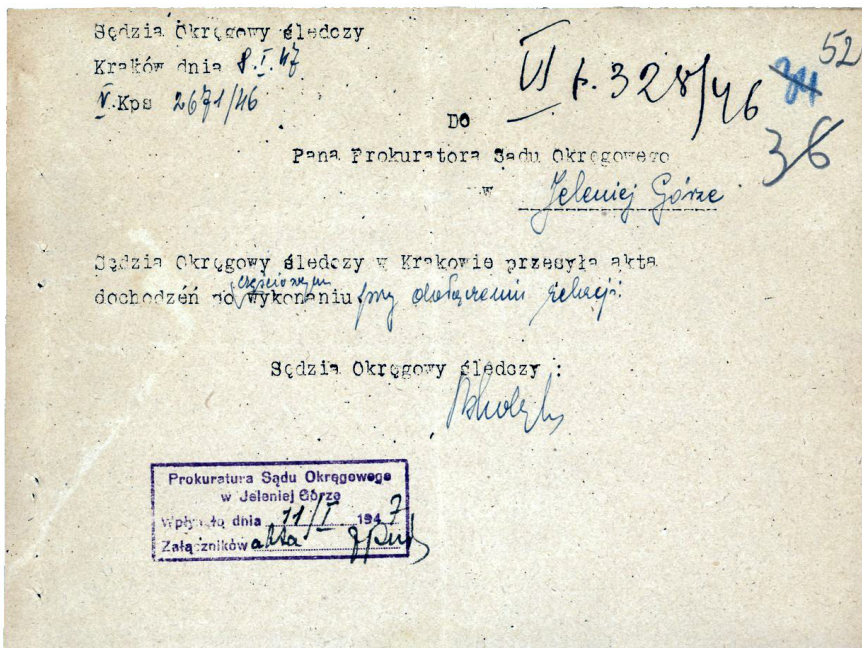 52
Sędzia Okręgowy śledczy
Kraków dnia 8.I.47
V.Kps 2671/46
VI p. 328/46
36
Do
Pana Prokuratora Sądu Okręgowego
w Jeleniej Górze
Sędzia Okręgowy śledczy w Krakowie przesyła akta
częściowym
dochodzeń po wykonaniu przy dołączeniu relacji
Sędzia Okręgowy śledczy :
Prokuratura Sądu Okręgowego
w Jeleniej Górze
Wpłynęło dnia 11/I 1947
Załączników akta